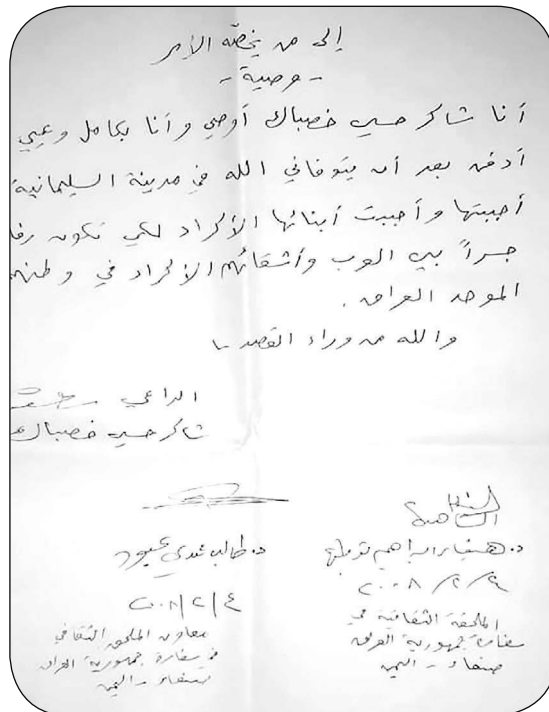 إلى من يخصّه الأمر
- وصية -
أنا شاكر حسين خصباك أوصي وأنا بكامل وعيي
أدفن بعد أن يتوفاني الله في مدينة السليمانية
أحببتها وأحببت أبنائها الأكراد لكي تكون رفا
جسراً بين العرب وأشقائهم الأكراد في وطنهم
الموحد العراق.
والله من وراء القصد
الداعي
شاكر حسين خصباك
الشاهدة
د. ابراهيم
٢٠٠٨/٢/٤
الملحقة الثقافية في
سفارة جمهورية العراق
صنعاء - اليمن
د. طالب عبود
٢٠٠٨/٢/٤
معاون الملحق الثقافي
في سفارة جمهورية العراق
صنعاء - اليمن